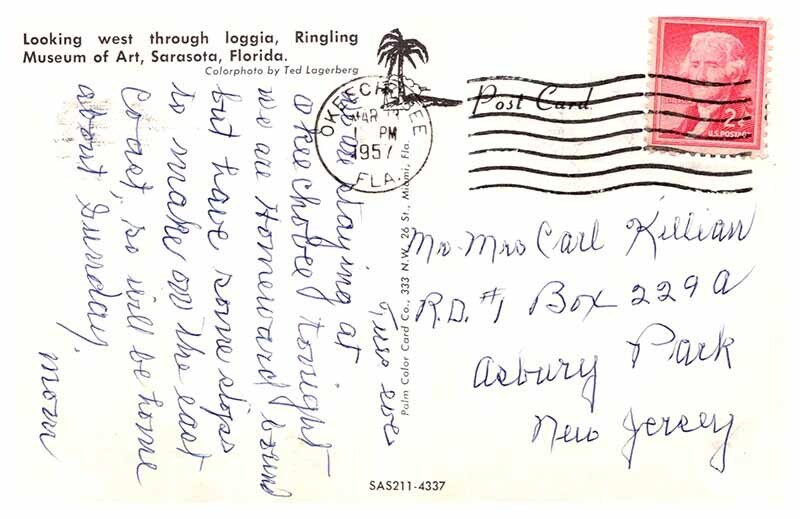 Looking west through loggia, Ringling
Museum of Art, Sarasota, Florida.
Colorphoto by Ted Lagerberg
Tues eve,
We are staying at
Okeechobee tonight
we are Homeward bound
but have some stops
to make on the east
coast, so will be home
about Sunday.
Mom
Palm Color Card Co., 333 N.W. 26 St., Miami, Fla.
Post Card
OKEECHOBEE
MAR
1 PM
1957
FLA.
2¢
U.S. POSTAGE
Mr. Mrs Carl Killian
R.D. #1 Box 229A
Asbury Park
New Jersey
SAS211-4337